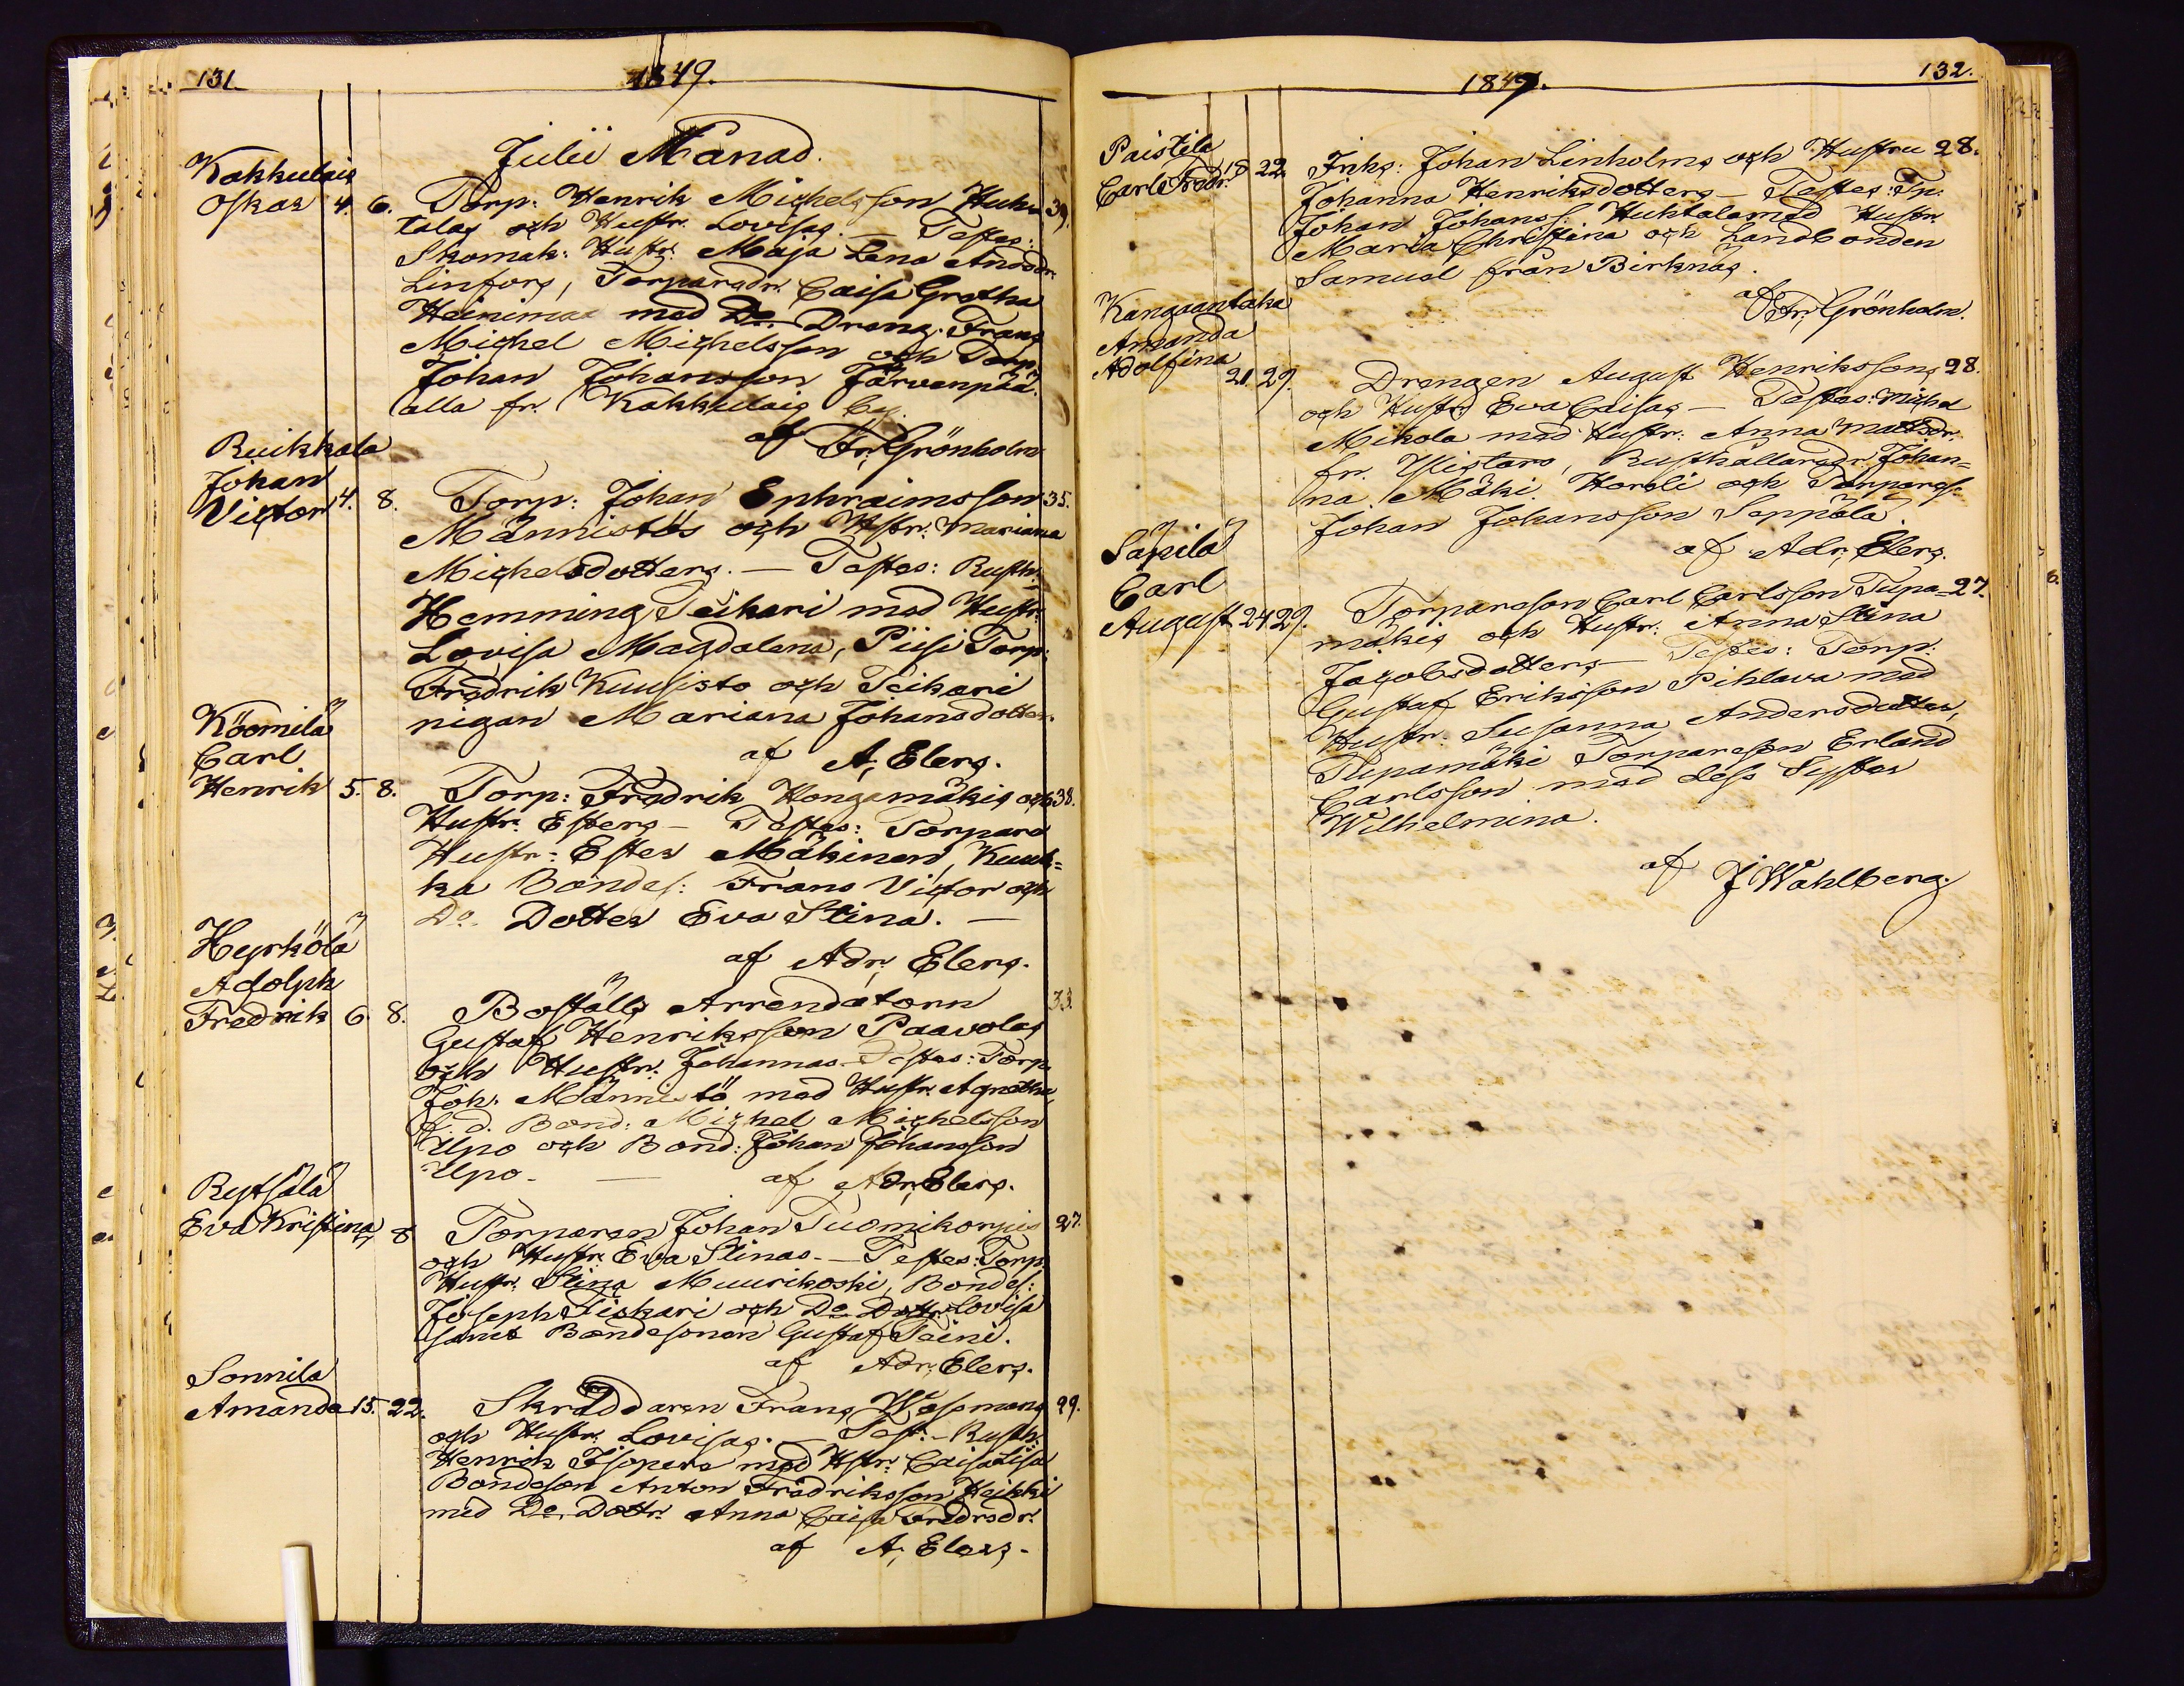 131.
1849.
Julii Månad.
Kakkulais
Oskar 4. 6. Torp: Henrik Michelsson Huh= 39.
talas och Hustr. Lovisas. — Testes:
Skomak: Hustr: Maja Lena Andsdr.
Linfors, Torparedr. Caisa Gretha
Heinimaa med Do. Dräng. Frans
Michel Michelsson och Torp:
Johan Johansson Järvenpää.
alla fr. Kakkulais By.
af Fr. Grönholm
Ruikkala
Johan
Victor 4. 8. Torp: Johan Ephraimsson 35.
Männistös och Hstr: Mariana
Michelsdotters. — Testes: Rusth:
Hemming Teikari med Hustr:
Lovisa Magdalena, Piisi Torp:
Fredrik Kuusisto och Teikari
pigan Mariana Johansdotter.
af A. Elers.
Köömilä
Carl
Henrik 5. 8. Torp: Fredrik Hongamäkis och 38.
Hustr. Esters — Testes: Torpare
Hustr: Ester Mäkinen, Kuuk=
ka Bondes: Frans Victor och
Do. Dotter Eva Stina. —
af Adr. Elers.
Hyrkölä
Adolph
Fredrik 6. 8. Boställs Arrendatorn 33.
Gustaf Henriksson Paavolas
och Hustr. Johannas. Testes: Torp.
Joh. Männistö med Hustr. Agnetha,
f. d. Bond: Michel Michelsson
Upo och Bond: Johan Johansson
Upo. — af Adr. Elers.
Rytsälä
Eva Kristina 7. 8 Torparen Johan Tuomikorpis 27.
och Hustr. Eva Stinas. — Testes: Torp.
Hustr. Stina Muurikoski, Bondes:
Joseph Tiskari och Do. Dottr. Lovisa
samt Bondesonen Gustaf Teini.
af Adr. Elers.
Sonnila
Amanda 15. 22. Skräddaren Frans Wessmans 29.
och Hustr. Lovisas. — Test: Rusth.
Henrik Isopere med Hstr. Caisa Lisa
Bondeson Anton Fredriksson Heikki
med Do. Dottr. Anna Caisa Fredrsdr.
af A. Elers.
1849.
132.
Paistila
Carl Fredr. 18 22. Inhs: Johan Linholms och Hustru 28.
Johanna Henriksdotters — Testes: Tp:
Johan Johanss. Huhtala med Hustr.
Maria Christina och Landbonden
Samuel från Birknäs.
af Fr. Grönholm.
Kangaantaka
Amanda
Adolfina 21. 29. Drengen August Henrikssons 28.
och Hustr: Eva Caisas — Testes: Michel
Mikola med Hustr: Anna Mattsdr.
fr. Ylistaro, Rusthållaredr. Johan=
na Mäki Hareli och Torpares:
Johan Johansson Seppälä.
af Adr. Elers.
Säkilä
Carl
August 24. 29. Torpareson Carl Carlsson Tupa= 27.
mäkis och Hustr: Anna Stina
Jacobsdotters — Testes: Torp:
Gustaf Eriksson Pihlava med
Hustr. Susanna Andersdotter,
Tupamäki Torpareson Erland
Carlsson med dess Syster
Wilhelmina.
af J. Wahlberg.